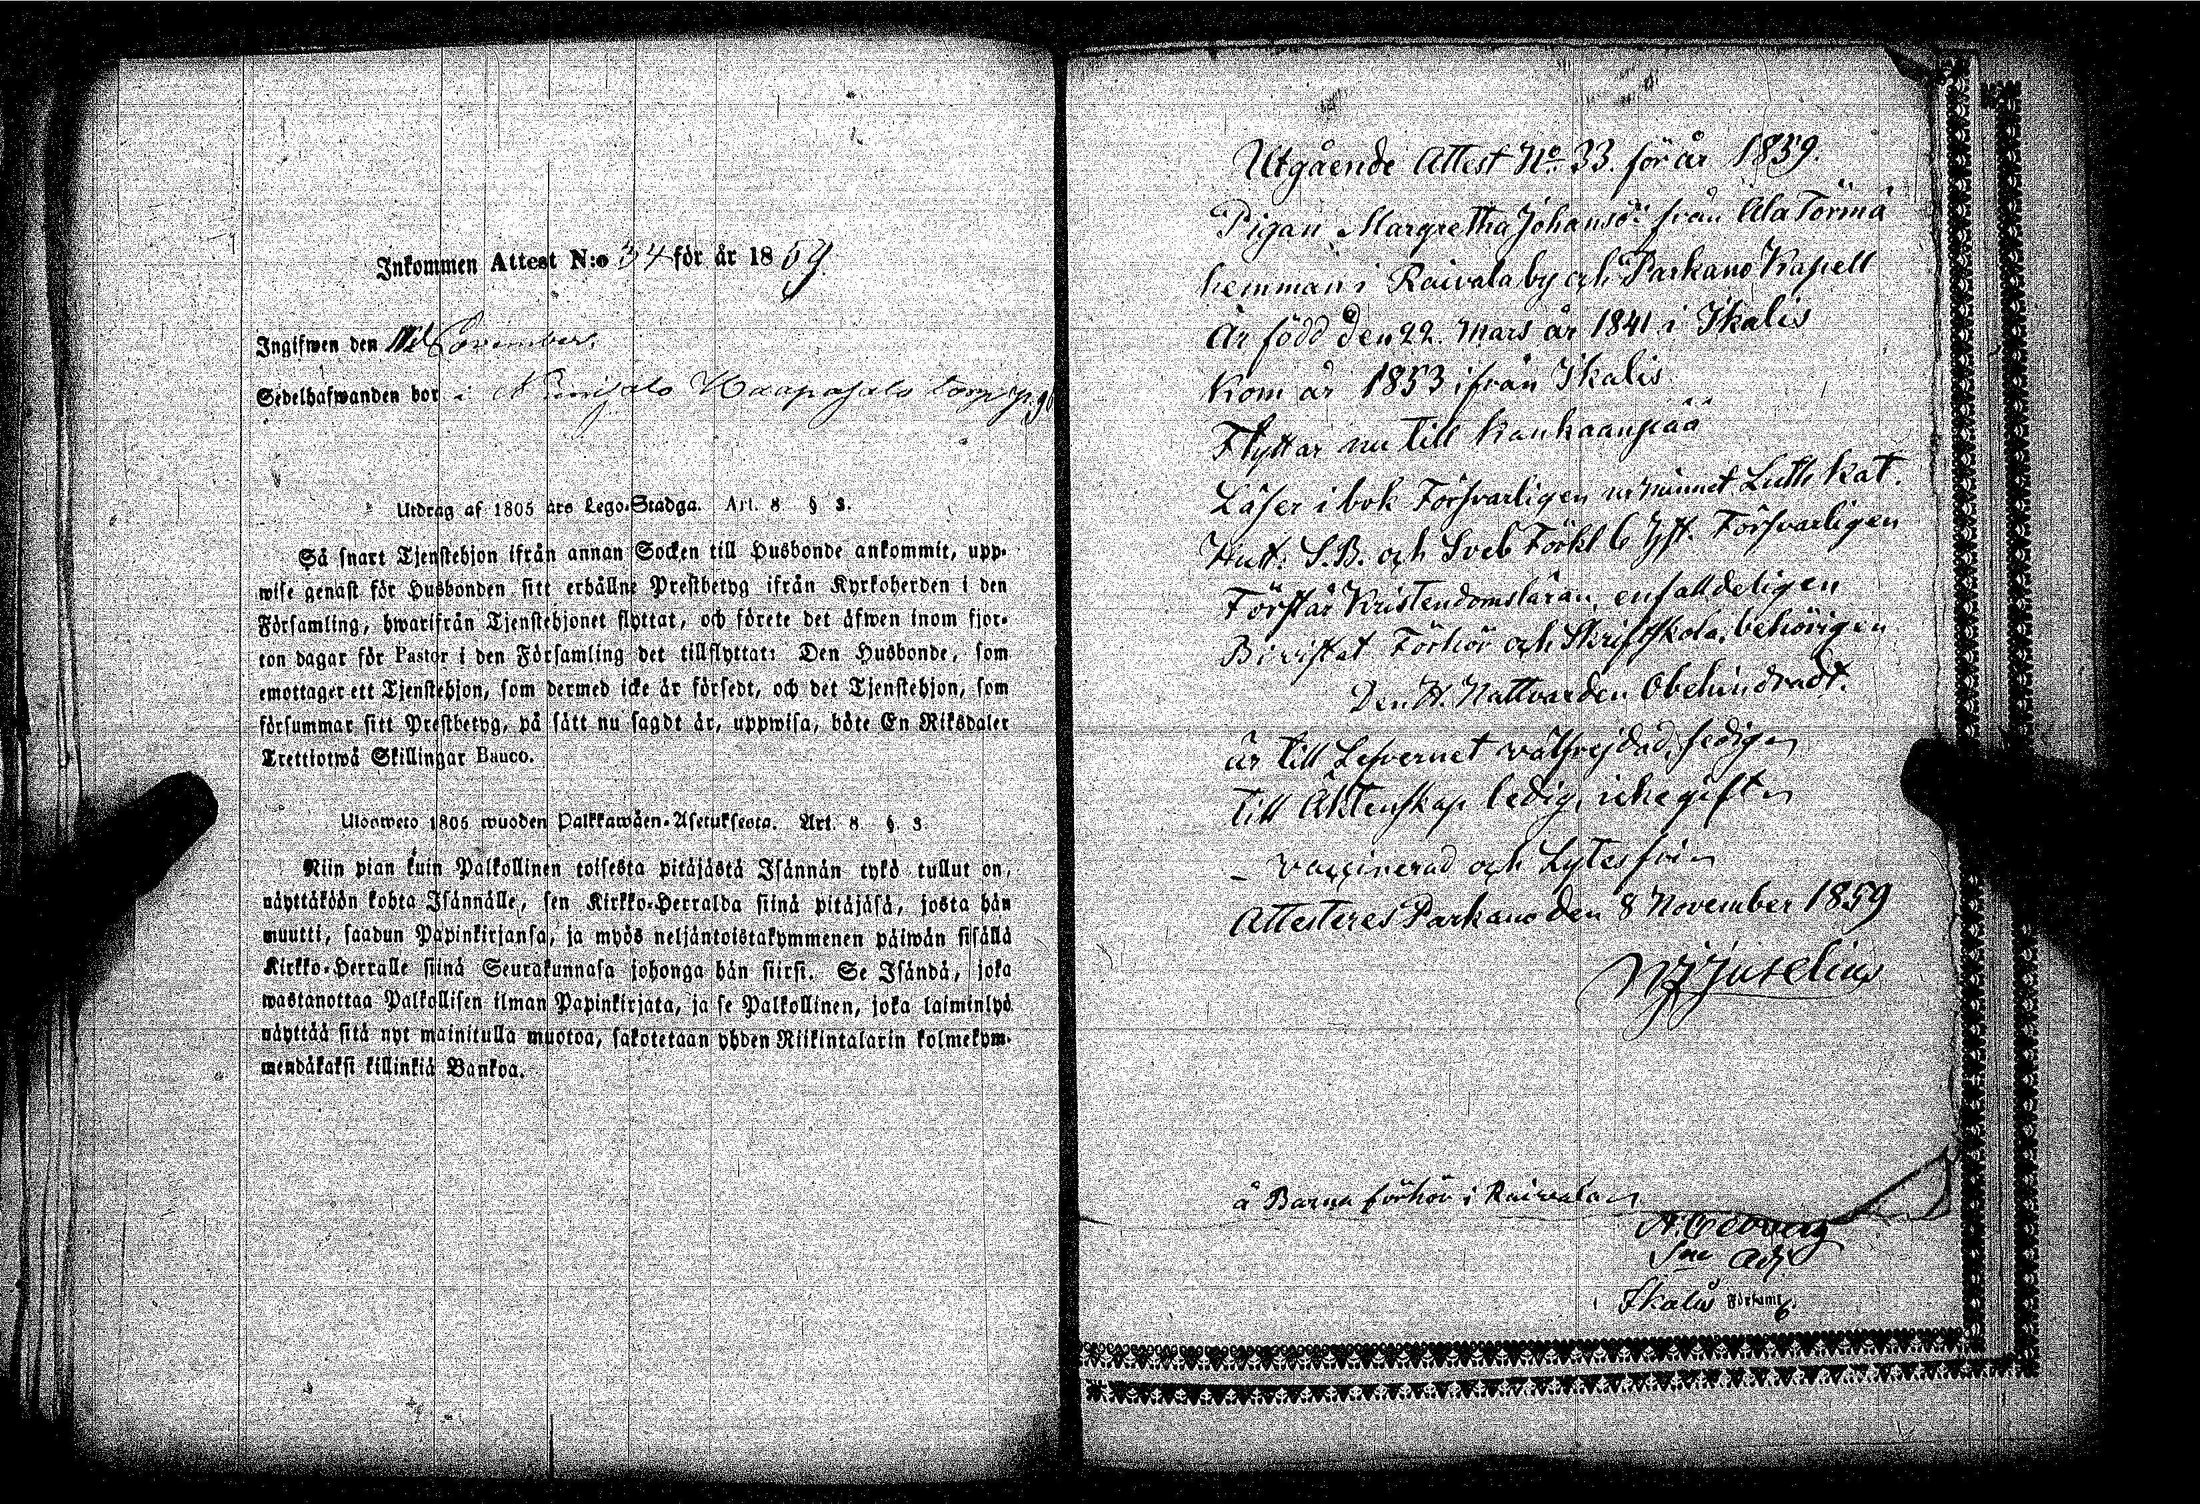 Inkommen Attest N:o 34 för år 1859.
Ingifwen den November.
Sedelhafwanden bor i Haapasalo torp
Utdrag af 1805 års Lego-Stadga. Art. 8 § 3.
Så snart Tjenstehjon ifrån annan Socken till Husbonde ankommit, upp-
wise genast för Husbonden sitt erhållne Prestbetyg ifrån Kyrkoherden i den
Församling, hwarifrån Tjenstehjonet flyttat, och förete det äfwen inom fjor-
ton dagar för Pastor i den Församling det tillflyttat: Den Husbonde, som
emottager ett Tjenstehjon, som dermed icke är försedt, och det Tjenstehjon, som
försummar sitt Prestbetyg, på sätt nu sagdt är, uppwisa, böte En Riksdaler
Trettiotwå Skillingar Banco.
Ulosweto 1805 wuoden Palkkawäen-Asetuksesta. Art. 8 §. 3.
Niin pian kuin Palkollinen toisesta pitäjästä Isännän tykö tullut on,
näyttäköön kohta Isännälle, sen Kirkko-Herralda siinä pitäjäsä, josta hän
muutti, saadun Papinkirjansa, ja myös neljäntoistakymmenen päiwän sisällä
Kirkko-Herralle siinä Seurakunnasa johonga hän siirsi. Se Isändä, joka
wastanottaa Palkollisen ilman Papinkirjata, ja se Palkollinen, joka laiminlyö
näyttää sitä nyt mainitulla muotoa, sakotetaan yhden Riikintalarin kolmekym-
mendäkaksi killinkiä Bankoa.
Utgående Attest No 33. för år 1859.
Pigan Margretha Johansdr från Ala Törmä
hemman i Raivala by och Parkano Kapell
Är född den 22. Mars år 1841 i Ikalis
Kom år 1853 ifrån Ikalis
Flyttar nu till Kankaanpää
Läser i bok Försvarligen ur minnet Luth Kat.
Hutt: S.B. och Sveb Förkl 6 Försvarligen
Förstår Kristendomsläran enfalldeligen
Bivistat Förhör och Skriftskola, behörigen
Den H. Nattvarden Obehindradt.
är till Lefvernet välfrejdad, sedig
till Äktenskap ledig, icke gift
vaccinerad och Lytesfri
Attesteres Parkano den 8 November 1859
Juselius
å Barna förhör i Raivala
Ikalis Församl.